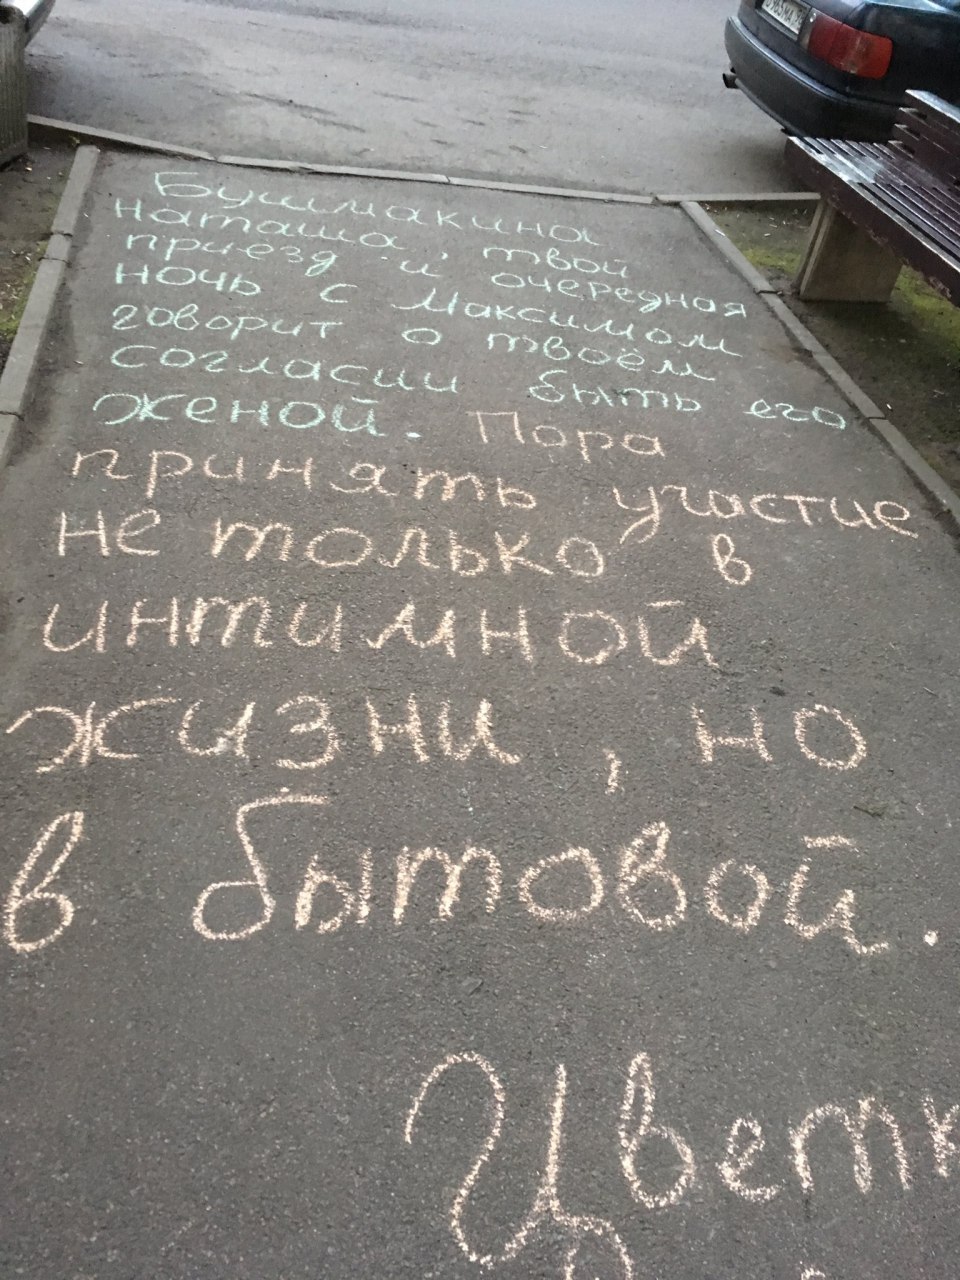 Бушмакина
наташа, твой
приезд и очередная
ночь с Максимом
говорит о твоём
согласии быть его
женой. Пора
принять участие
не только в
интимной
жизни, но
в бытовой.